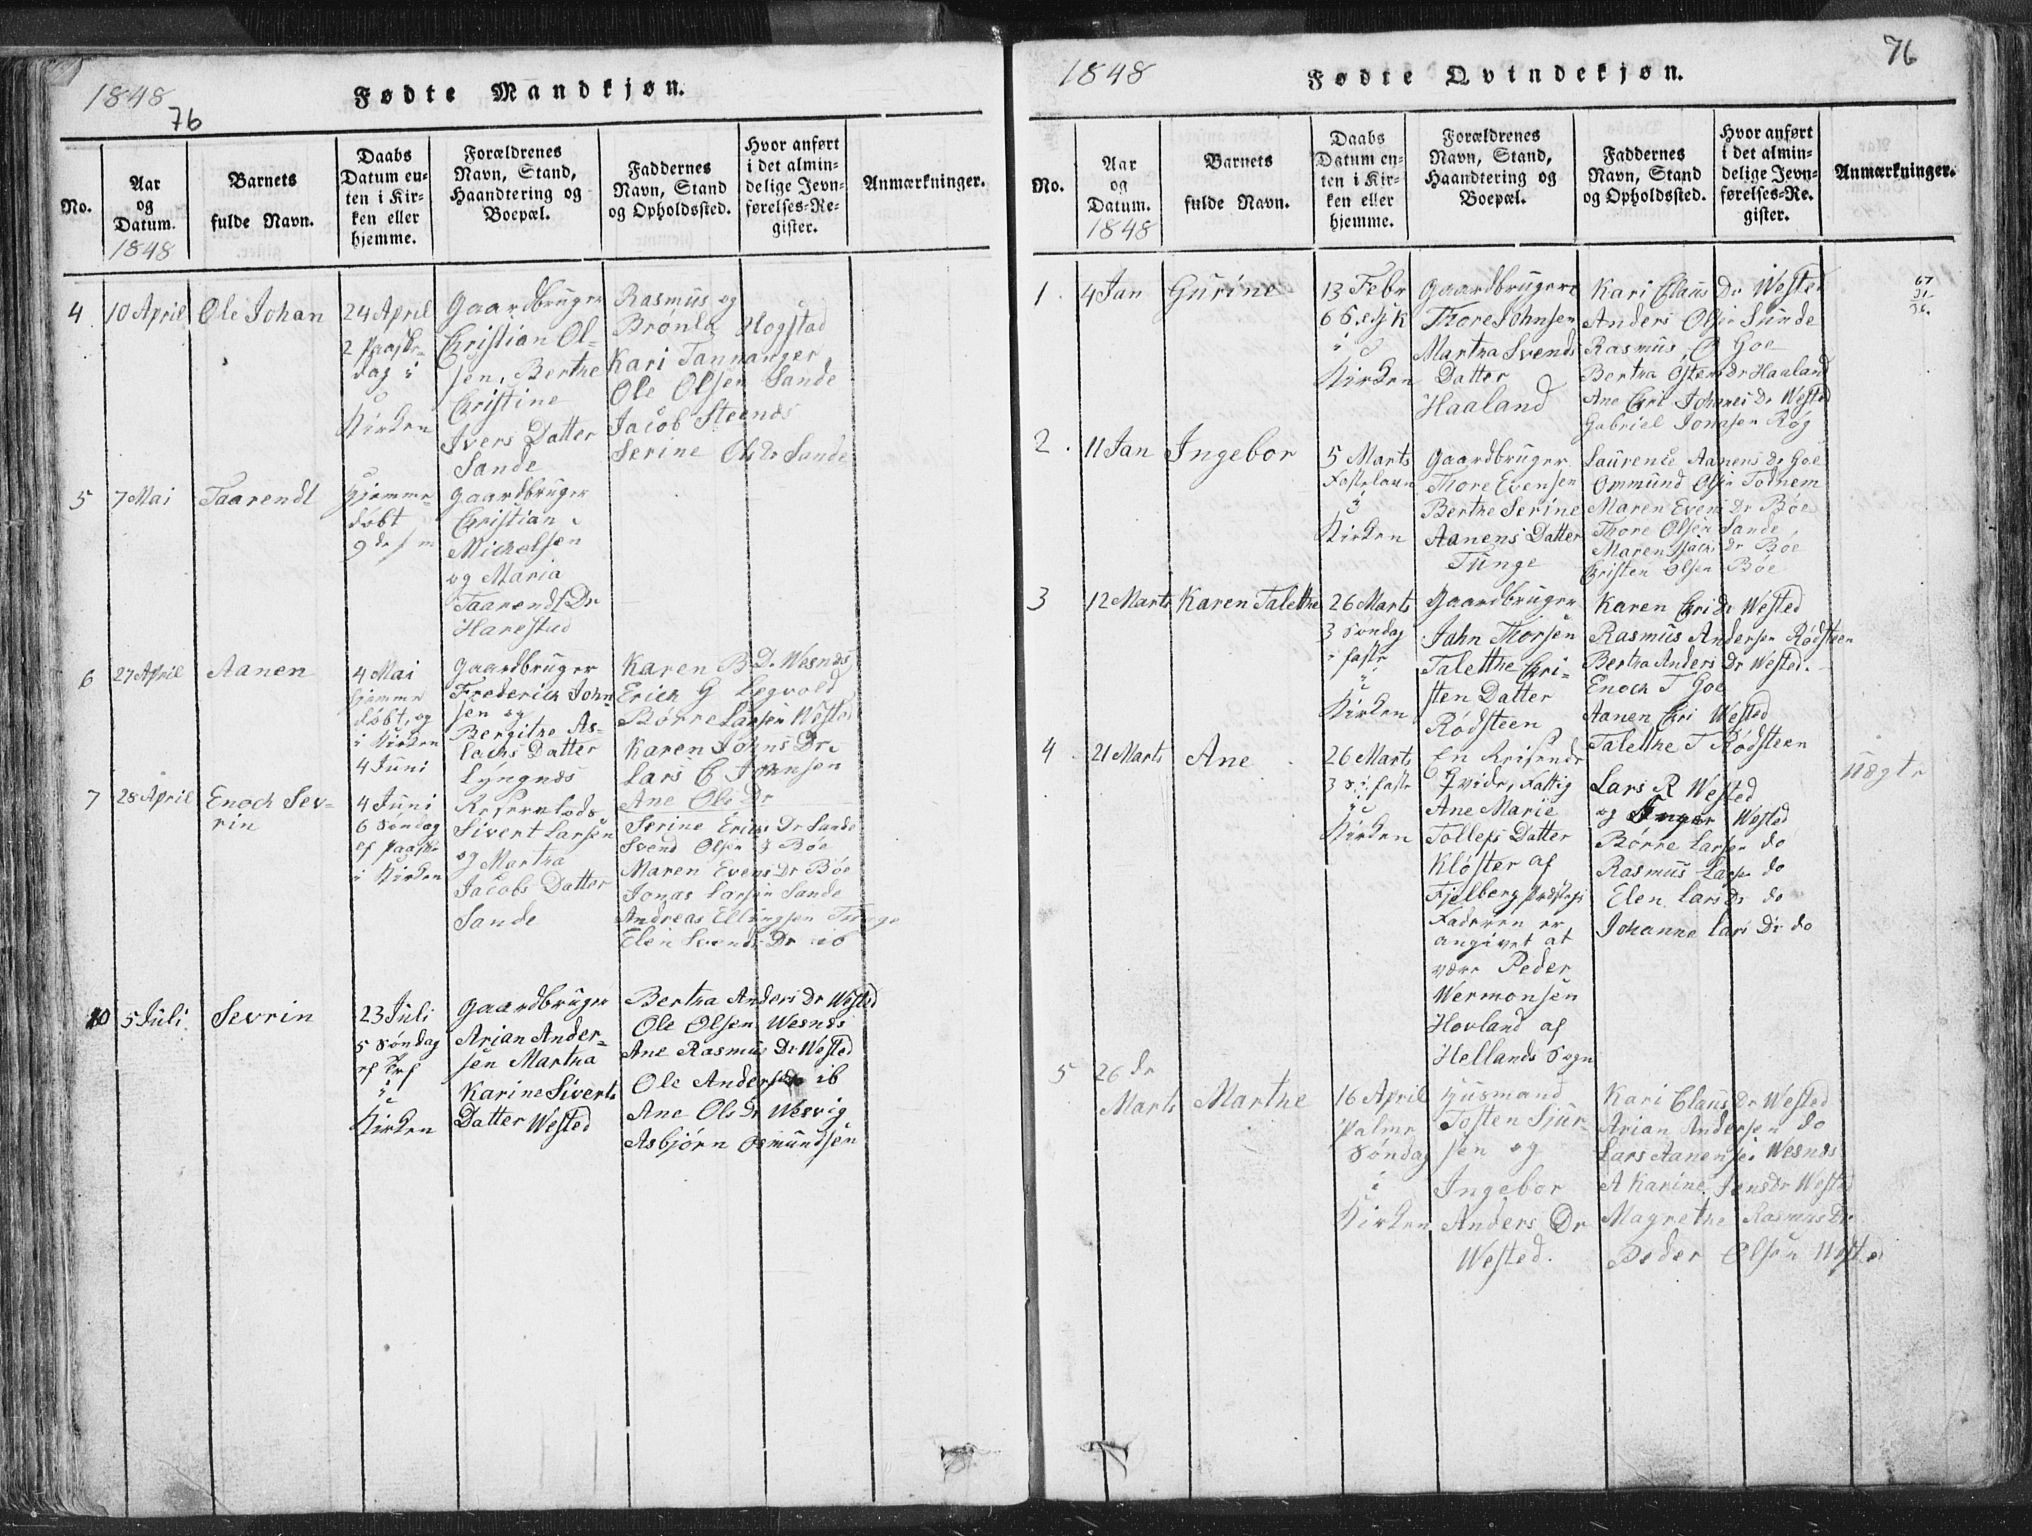 1848
76
Fødte Mandkjøn.
No.
Aar
og
Datum.
1848
Barnets
fulde Navn.
Daabs
Datum en-
ten i Kir-
ken eller
hjemme.
Forældrenes
Navn, Stand,
Haandtering og
Boepæl.
Faddernes
Navn, Stand
og Opholdssted.
Hvor anført
i det almin-
delige Jevn-
førelses-Re-
gister.
Anmærkninger.
4
10 April
Ole Johan
24 April
dag i
Kirken
Gaardbruger
Christian Ol-
sen, Berthe
Christine
Ivers Datter
Sande
Rasmus og
Hogstad
Kari Tannanger
Ole Olsen Sande
Jacob Steends
Serine Ols Dr Sande
5
7 Mai
Taarendt
Hjemme-
døbt
Gaardbruger
Christian
Michelsen
og Maria
Taarends Dr
Harestad
6
27 April
Aanen
4 Mai
hjemme
døbt, og
i Kirken
4 Juni
Gaardbruger
Frederich John-
sen og
Bergithe As-
lachs Datter
Lyngnæs
Karen B D. Wesnæs
Erich G Legvold
Børre Larsen Wested
Karen Johns Dr
Lars C Johnsen
Ane Ols Dr
7
28 April
Enoch Sev-
rin
4 Juni
6 Søndag
ef Paaske
i Kirken
Sivert Larsen
og Martha
Jacobs Datter
Sande
Serine Erichs Dr Sande
Svend Olsen Bøe
Maren Evens Dr Bøe
Jonas Larsen Sande
Andreas Ellingsen Tunge
Elen Svends Dr ib
10
5 Juli
Sevrin
23 Juli
5 Søndag
ef Tref
i
Kirken
Gaardbruger
Arian Ander-
sen Martha
Karine Siverts
Datter Wested
Bertha Anders Dr Wested
Ole Olsen Wesnæs
Ane Rasmus Dr Wested
Ole Andersen ib
Ane Ols Dr Wesvig
Asbjørn Osmundsen
1848
76
Fødte Qvindekjøn.
No.
Aar
og
Datum.
1848
Barnets
fulde Navn.
Daabs
Datum en-
ten i Kir-
ken eller
hjemme.
Forældrenes
Navn, Stand,
Haandtering og
Boepæl.
Faddernes
Navn, Stand
og Opholdssted.
Hvor anført
i det almin-
delige Jevn-
førelses-Re-
gister.
Anmærkninger.
1
4 Jan
Gurine
13 Febr
6 S. e H 3 K
i
Kirken
Gaardbruger
Thore Johnsen
Martha Svends
Datter
Haaland
Kari Claus Dr Wested
Anders Olsen Sunde
Rasmus O Goe
Bertha Ostens Dr Haaland
Ane Chri Johnnes Dr Wested
Gabriel Jonasen Røg
67
31
36
2
11 Jan
Ingebor
5 Marts
Fastelavn
i
Kirken
Gaardbruger
Thore Evensen
Berthe Serine
Aanens Datter
Tunge
Laurence Aanens Dr Goe
Ommund Olsen Todnem
Maren Evens Dr Bøe
Thore Olsen Sande
Maren Isachs Dr Bøe
Christen Olsen Bøe
3
12 Marts
Karen Talethe
26 Marts
3 Søndag
i faste
i
Kirken
Gaardbruger
Jahn Thorsen
Talethe Chri-
sten Datter
Rødsteen
Karen Chri Dr Wested
Rasmus Andersen Rødsteen
Bertha Anders Dr Wested.
Enoch T Goe
Aanen Chri Wested
Talethe T Rødsteen
4
21 Marts
Ane
26 Marts
3 S. i faste
i
Kirken
En Reisende
Qvide, Fattig
Ane Marie
Tollefs Datter
Kloster af
Fjelberg Præstegj
Faderen er
angivet at
være Peder
Wermonsen
Hovland af
Hellands Sogn
Lars R Wested
og Inger Wested
Børre Larsen do
Rasmus Larsen do
Elen Lars Dr do
Johanne Lars Dr do
uægte
5
26 de
Marts
Marthe
16 April
Palme
Søndag
i
Kirken
Husmand
Tosten Sjur-
sen og
Ingebor
Anders Dr
Wested.
Kari Claus Dr Wested
Arian Andersen do
Lars Aanensen Wesnæs
A Karine Jens Dr Wested
Magrethe Rasmus Dr
Peder Olsen Wested